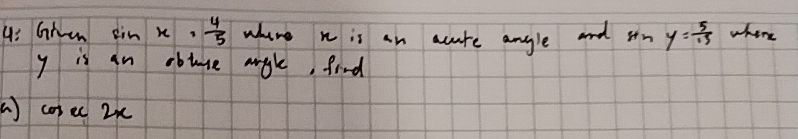 4: Given sin x = 4/5 where x is an acute angle and sin y = 5/13 where
y is an obtuse angle, find
a) cosec 2x